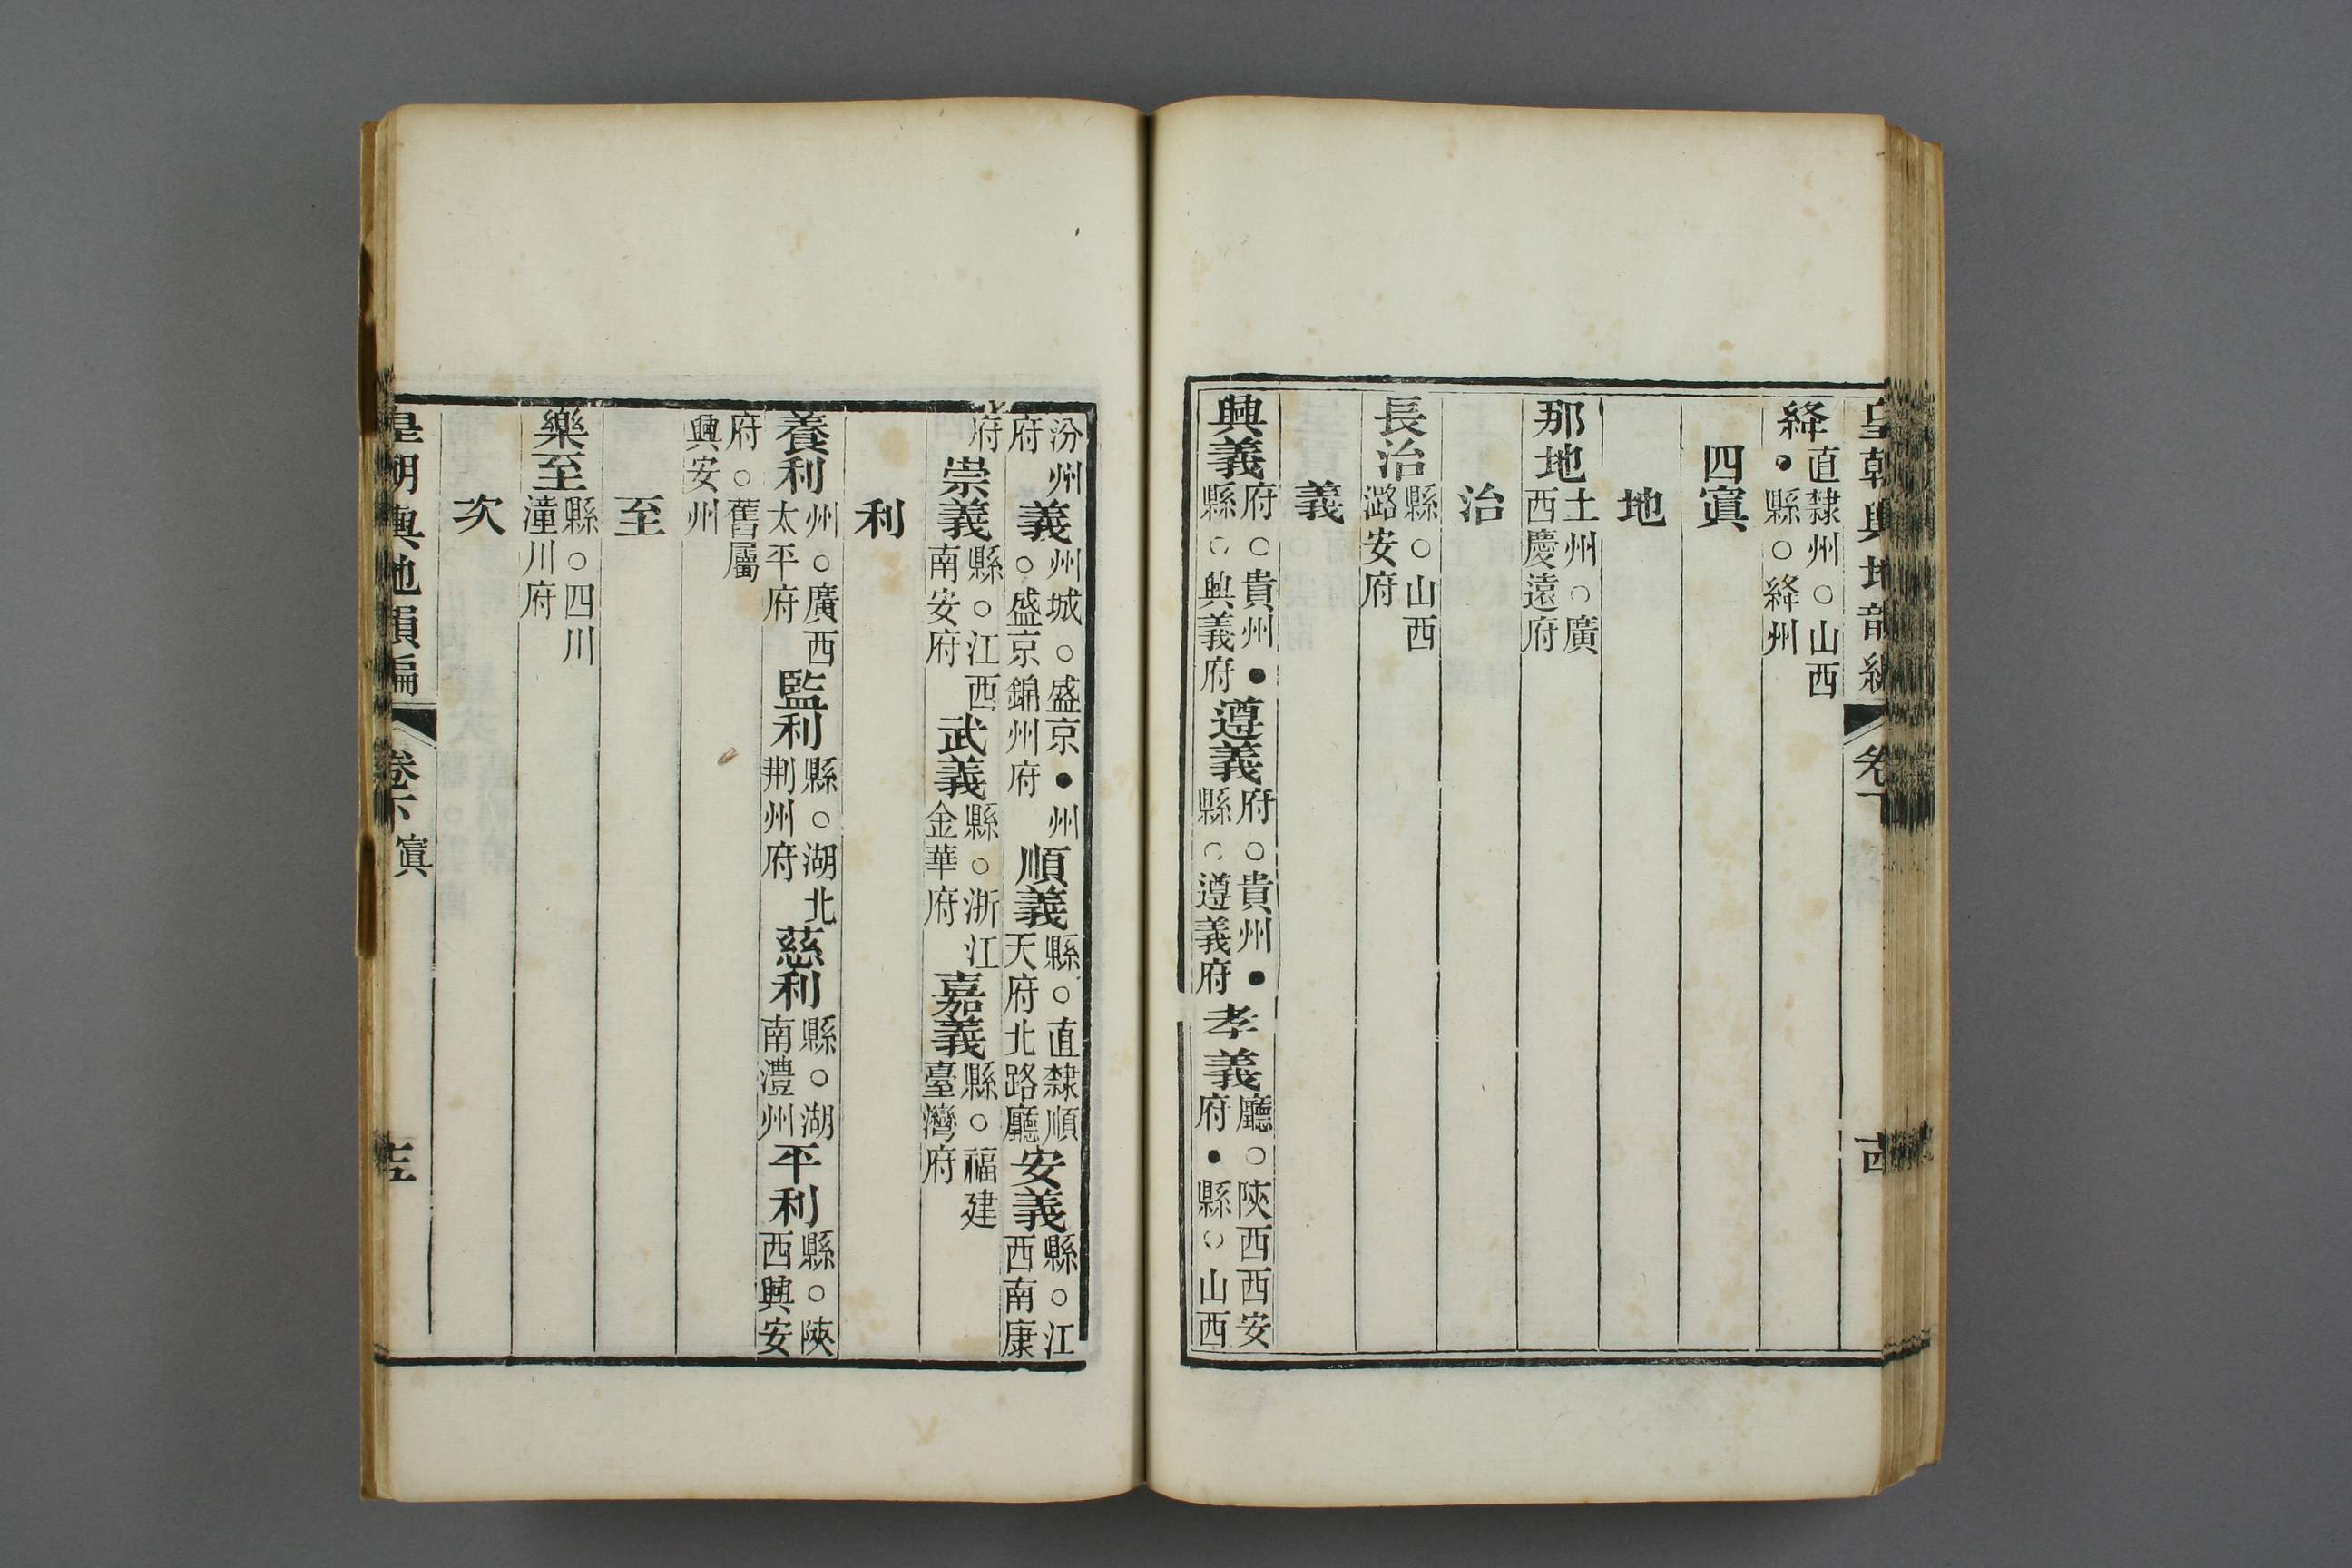 皇朝輿地韻編 卷下 古
絳直隸州○山西
●縣○絳州
四寘
地
那地土州○廣
西慶遠府
治
長治縣○山西
潞安府
義
興義府○貴州●
縣○興義府
遵義府○貴州●
縣○遵義府
孝義廳○陝西西安
府●縣○山西
汾州
府
義州城○盛京●州
○盛京錦州府
順義縣○直隸順
天府北路廳
安義縣○江
西南康
府
崇義縣○江西
南安府
武義縣○浙江
金華府
嘉義縣○福建
臺灣府
利
養利州○廣西
太平府
監利縣○湖北
荆州府
慈利縣○湖
南澧州
平利縣○陝
西興安
府○舊屬
興安州
至
樂至縣○四川
潼川府
次
皇朝輿地韻編 卷下 寘